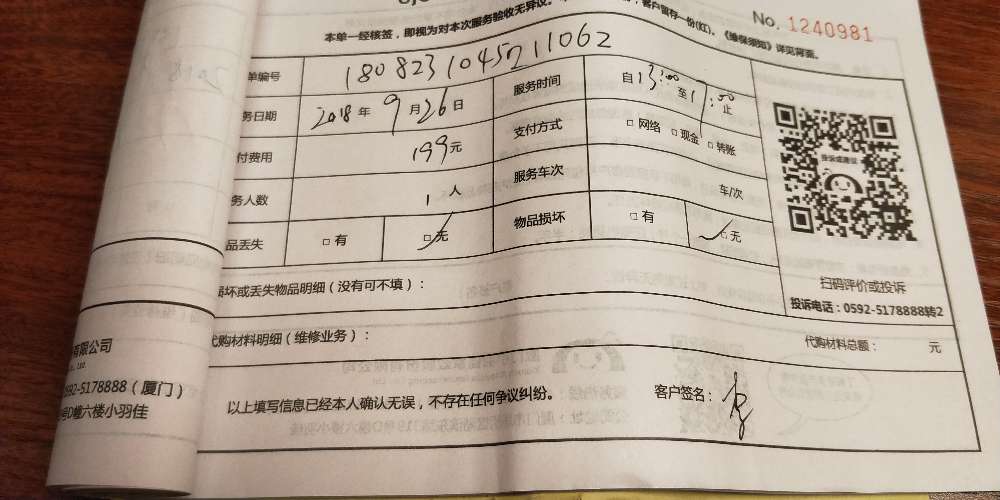 No. 1240981
本单一经核签，即视为对本次服务验收无异议。
客户留存一份(红)。《维保须知》详见背面。
单编号 180823104521106​2
务日期 2018年9月26日 服务时间 自13:00至17:00止
付费用 199元 支付方式 □ 网络 □ 现金 □ 转账
务人数 1人 服务车次 车/次
品丢失 □ 有 □ 无 物品损坏 □ 有 □ 无
投诉或建议
扫码评价或投诉
投诉电话：0592-5178888转2
损坏或丢失物品明细（没有可不填）：
代购材料明细（维修业务）： 代购材料总额： 元
以上填写信息已经本人确认无误，不存在任何争议纠纷。 客户签名：
有限公司
592-5178888（厦门）
号D幢六楼小羽佳